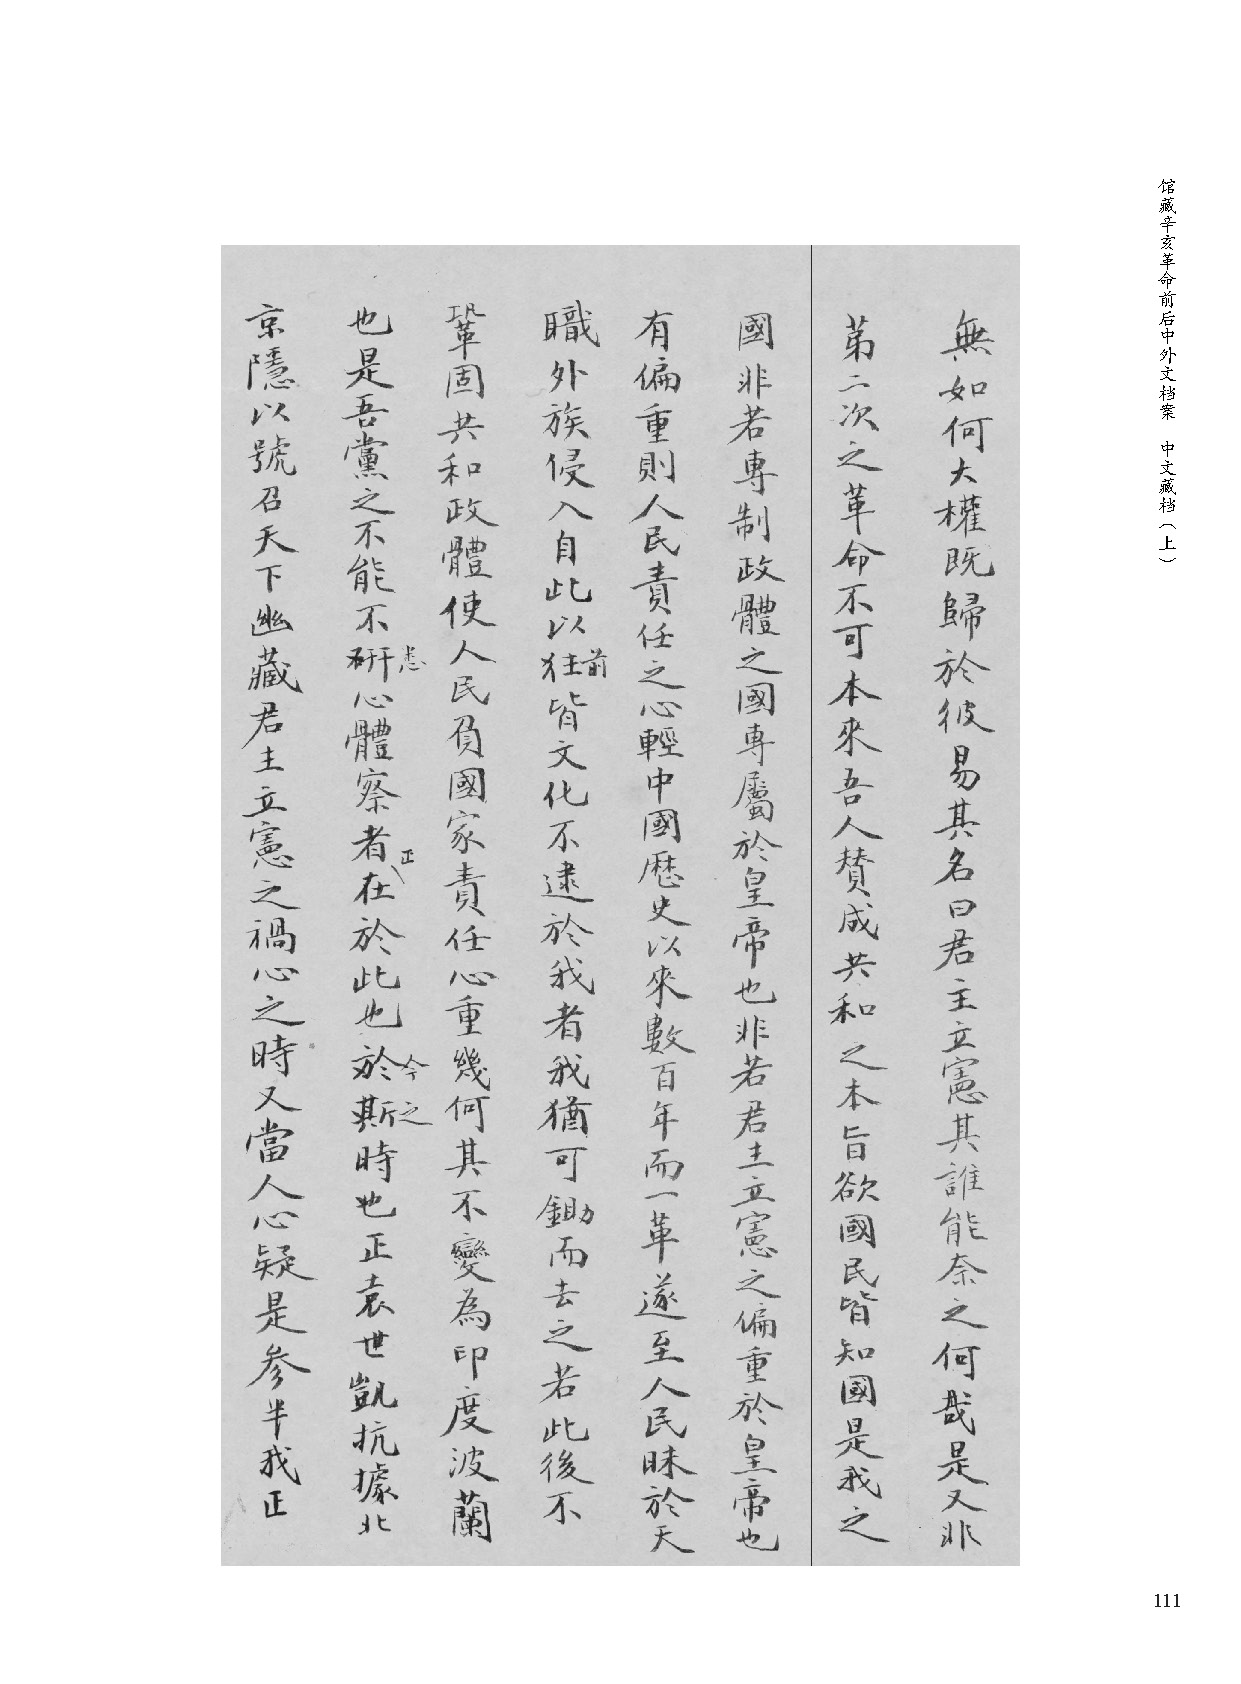 馆藏辛亥革命前后中外文档案 中文藏档（上）
無如何大權既歸於彼易其名曰君主立憲其誰能奈之何哉是又非
第二次之革命不可本來吾人贊成共和之本旨欲國民皆知國是我之
國非若專制政體之國專屬於皇帝也非若君主立憲之偏重於皇帝也
有偏重則人民責任之心輕中國歷史以來數百年而一革遂至人民昧於天
職外族侵入自此以往前皆文化不逮於我者我猶可鋤而去之若此後不
鞏固共和政體使人民負國家責任心重幾何其不變為印度波蘭
也是吾黨之不能不研悉心體察者正在於此也於斯今之時也正袁世凱抗據北
京隱以號召天下幽藏君主立憲之禍心之時又當人心疑是參半我正
111